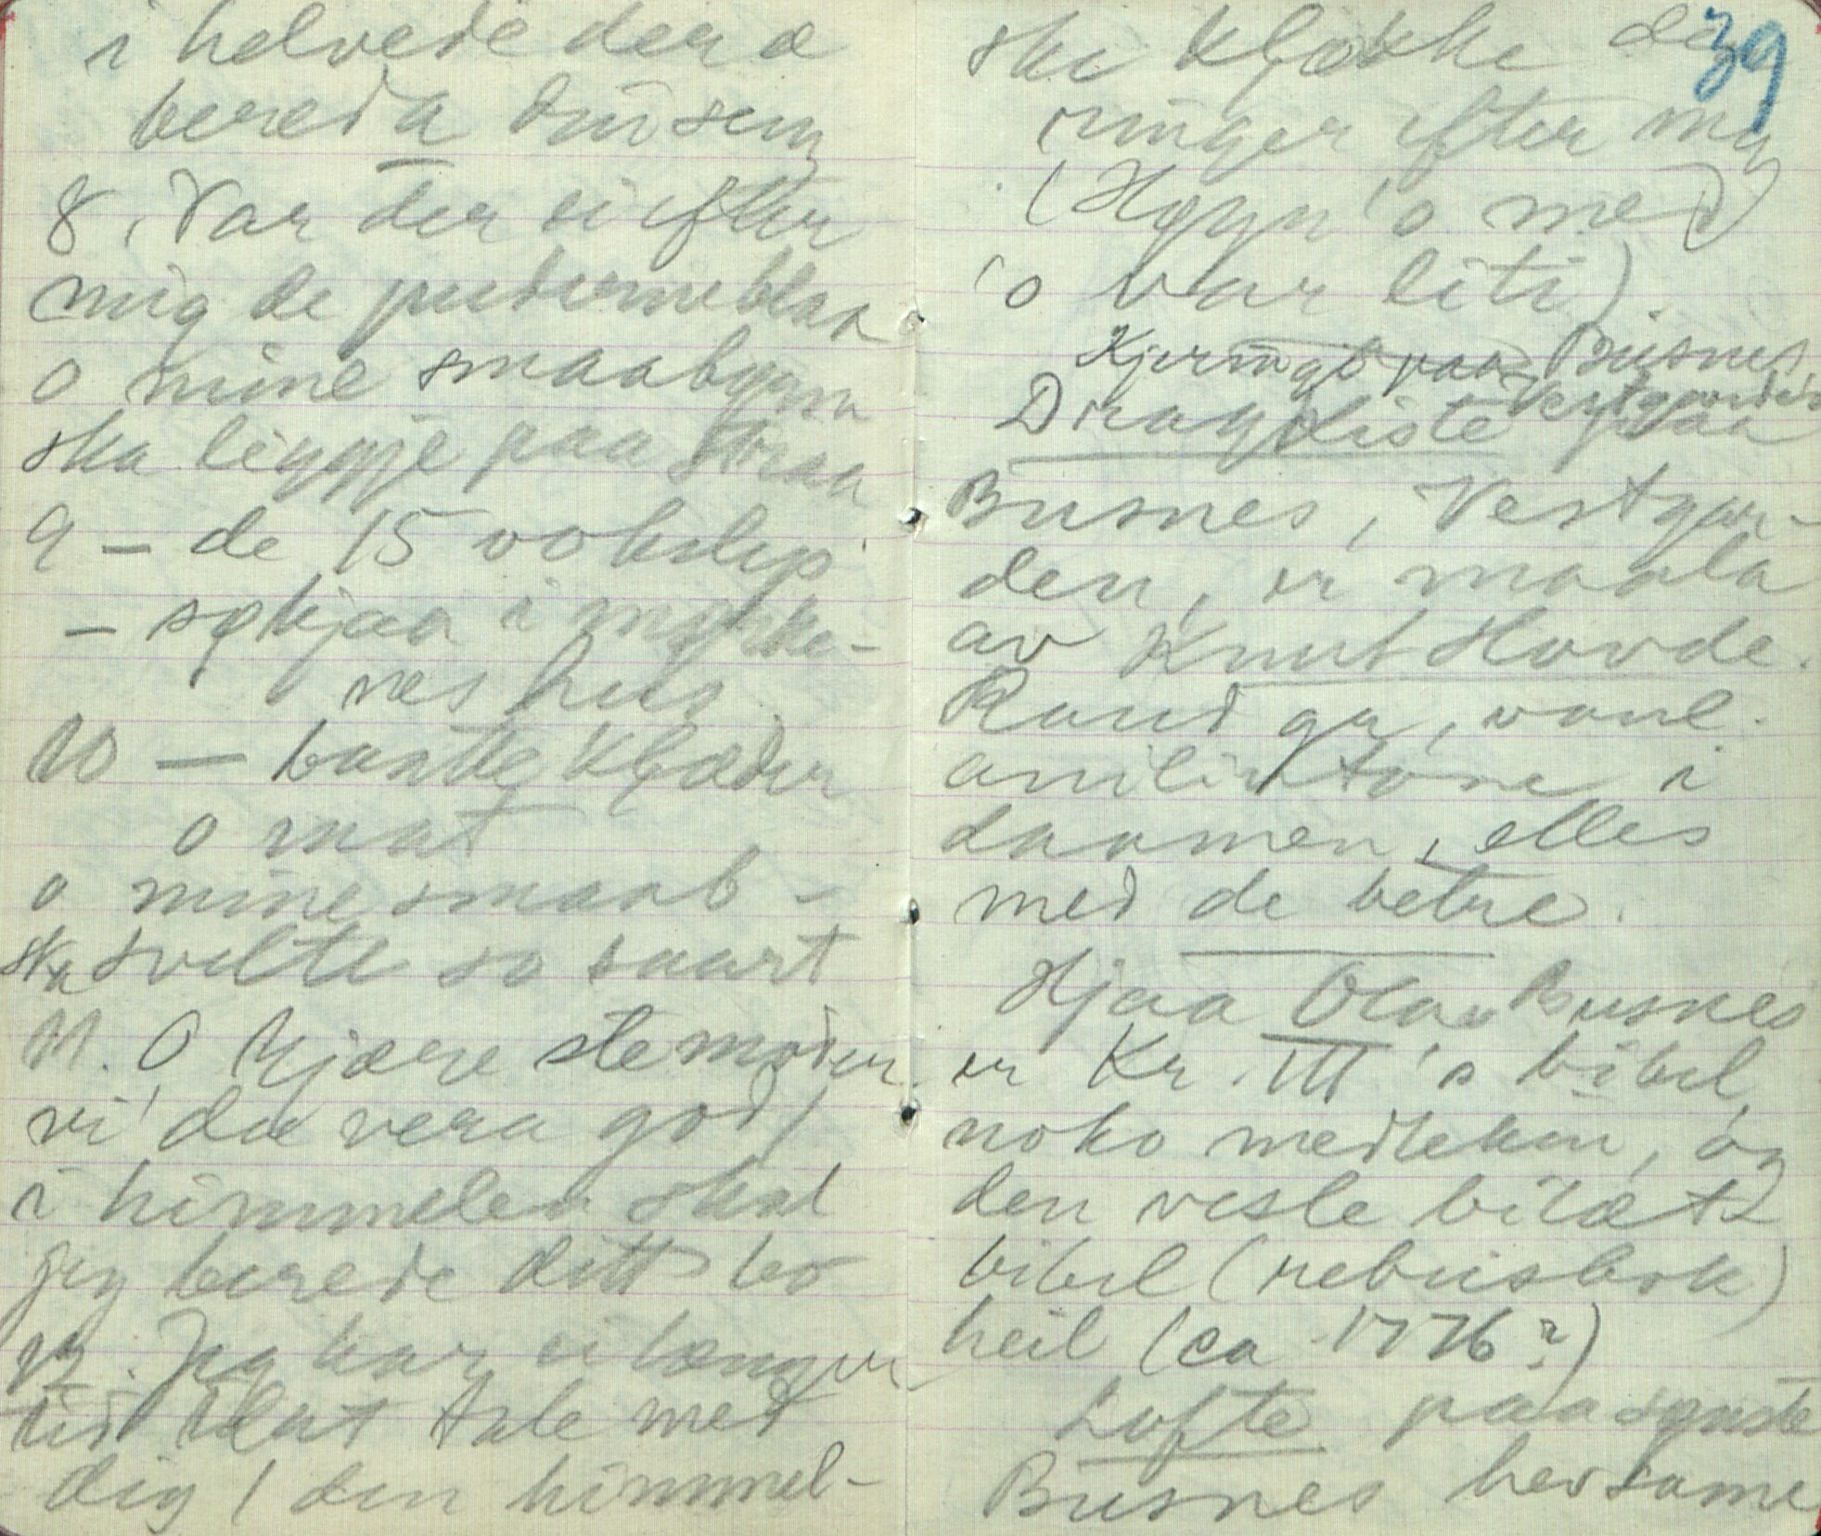 i helvede der æ
bereda din seng
8, Var der ei efter
mig de puderneblaa
o mine smaabynn
ska liggje paa straa
9 – de 15 vokslys
– søkjaa i mørke-
nes hus
10 — baatte klæder
o mat
o mine smaab –
ska svelte so saart
11. O kjære stemoder
vi du vera god
i himmelen skal
jeg berede ditt bo
12. Jeg har ei længer
tid at tale med
dig / den himmel-
39
ske klokke de
ringer efter mig
(Høyr's med
's var liti)
Kjeringi paa Busnes,
Vestgarden
Dragkiste paa
Busnes, Vestgar-
den, er maala
av Knut Hovde.
Raud gr, vanl.
anilintone i
daamen, elles
med de betre.
Hjaa Olav Busnes
er Kr. III's bibel,
noko medteken, og
den vesle bilæt
bibel (rebusbok)
heil (ca 1776?)
Lofte paa synste
Busnes hev same